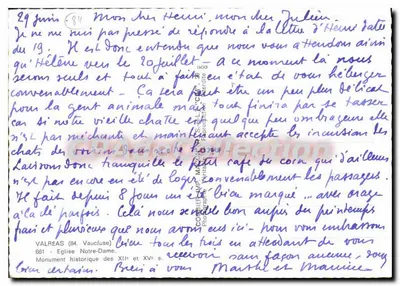 29 juin (84) Mon cher Henri, mon cher Julien.
Je ne me suis pas pressé de répondre à la lettre d'Henri datée
du 19. Il est donc entendu que nous vous attendons ainsi
qu'Hélène vers le 20 juillet. A ce moment là nous
serons seuls et tout à fait en état de vous héberger
convenablement. Ça sera peut être un peu plus délicat
pour la gent animale mais tout finira par se tasser
car si notre vieille chatte est quelque peu ombrageuse elle
n'est pas méchante et maintenant accepte les incursions des
chats des voisins
Laissons donc tranquille le petit café du coca qui d'ailleurs
n'est pas encore en été de loger convenablement les passagers.
Il fait depuis 8 jours un été bien marqué... avec orage
à la clé parfois. Cela nous semble bon après le printemps
frais et pluvieux que nous avons eu ici. pour vous embrassons
bien tous les trois en attendant de vous
VALREAS (84. Vaucluse)
681 - Eglise Notre-Dame.
Monument historique des XIIe et XVe s.
recevoir sans façon aucune, soyez
bien certains. Bien à vous Marthe et Maurice